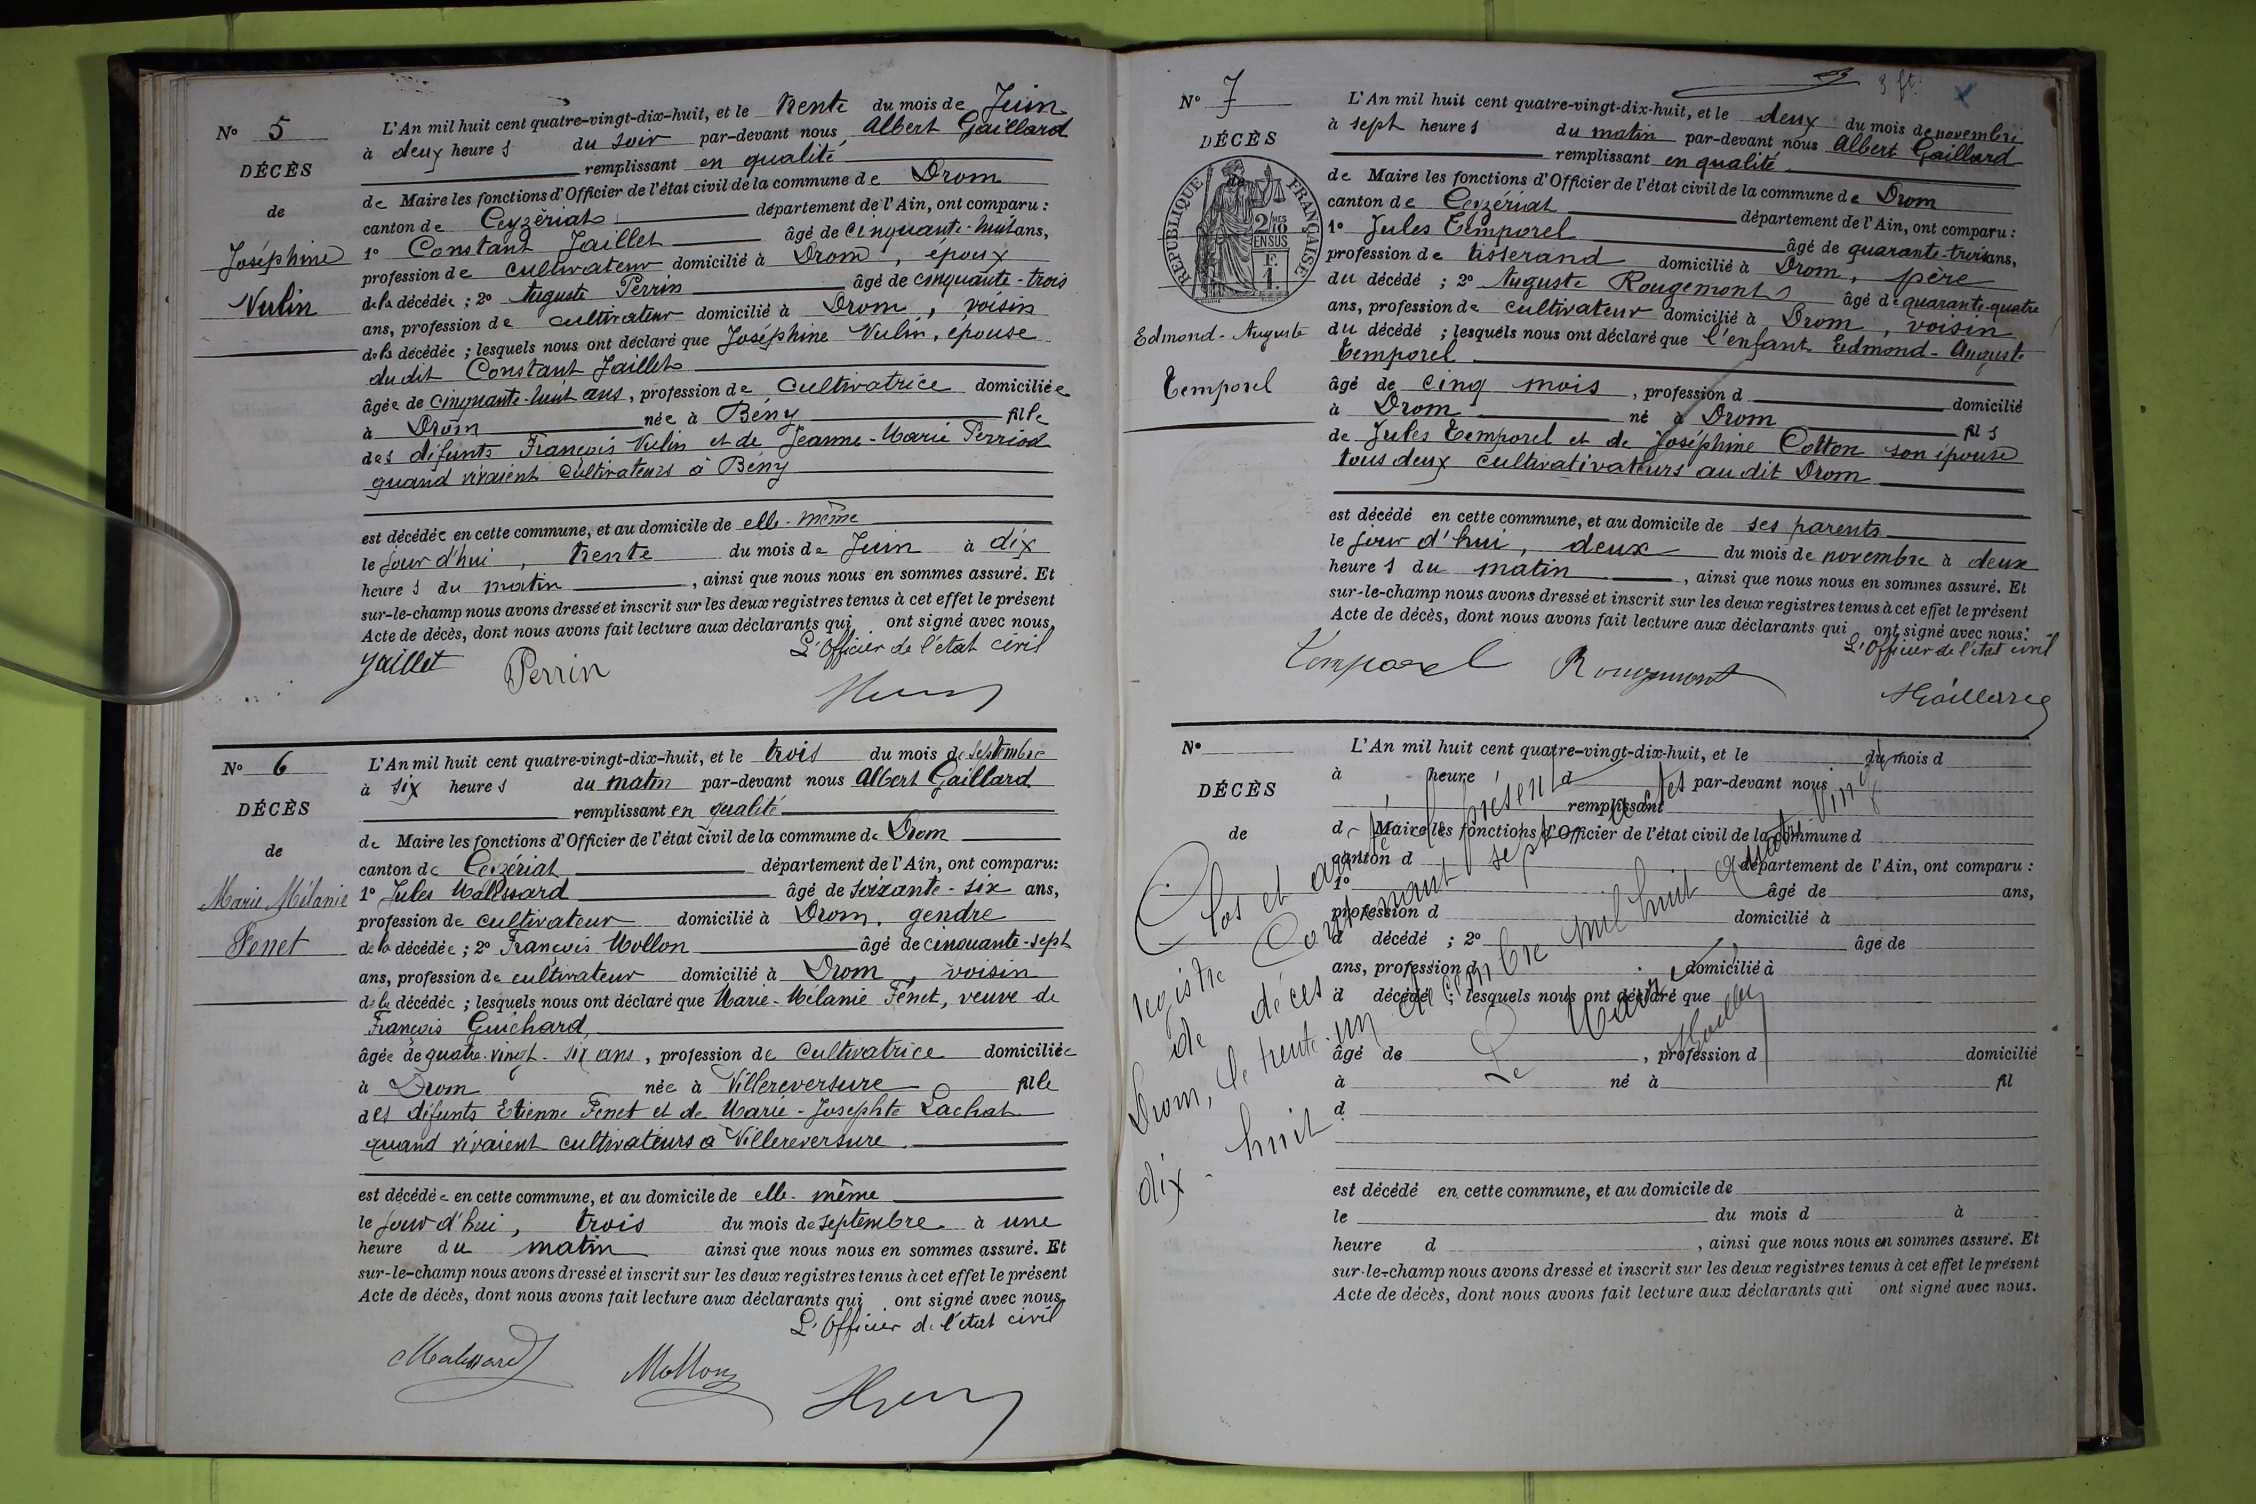 N° 5
DÉCÈS
de
Joséphine
Vulin
L'An mil huit cent quatre-vingt-dix-huit, et le trente du mois de Juin
à deux heures du soir par-devant nous Albert Gaillard
remplissant en qualité
de Maire les fonctions d'Officier de l'état civil de la commune de Drom
canton de Ceyzériat département de l'Ain, ont comparu :
1° Constant Jaillet âgé de cinquante-huit ans,
profession de cultivateur domicilié à Drom, époux
de la décédée ; 2° Auguste Perrin âgé de cinquante-trois
ans, profession de cultivateur domicilié à Drom, voisin
de la décédée ; lesquels nous ont déclaré que Joséphine Vulin, épouse
du dit Constant Jaillet
âgée de cinquante-huit ans, profession de cultivatrice domiciliée
à Drom née à Bény fille
des défunts François Vulin et de Jeanne-Marie Perriod
quand vivaient cultivateurs à Bény
est décédée en cette commune, et au domicile de elle-même
le jour d'hui, trente du mois de Juin à dix
heures du matin, ainsi que nous nous en sommes assuré. Et
sur-le-champ nous avons dressé et inscrit sur les deux registres tenus à cet effet le présent
Acte de décès, dont nous avons fait lecture aux déclarants qui ont signé avec nous.
L'Officier de l'état civil
Jaillet Perrin
N° 6
DÉCÈS
de
Marie Mélanie
Fenet
L'An mil huit cent quatre-vingt-dix-huit, et le trois du mois de septembre
à six heures du matin par-devant nous Albert Gaillard
remplissant en qualité
de Maire les fonctions d'Officier de l'état civil de la commune de Drom
canton de Ceyzériat département de l'Ain, ont comparu :
1° Jules Malessard âgé de soixante-six ans,
profession de cultivateur domicilié à Drom, gendre
de la décédée ; 2° François Mollon âgé de cinquante-sept
ans, profession de cultivateur domicilié à Drom, voisin
de la décédée ; lesquels nous ont déclaré que Marie-Mélanie Fenet, veuve de
François Guichard,
âgée de quatre-vingt-six ans, profession de cultivatrice domiciliée
à Drom née à Villereversure fille
des défunts Etienne Fenet et de Marie-Josephte Lachat
quand vivaient cultivateurs à Villereversure.
est décédée en cette commune, et au domicile de elle-même
le jour d'hui, trois du mois de septembre à une
heure du matin ainsi que nous nous en sommes assuré. Et
sur-le-champ nous avons dressé et inscrit sur les deux registres tenus à cet effet le présent
Acte de décès, dont nous avons fait lecture aux déclarants qui ont signé avec nous.
L'Officier de l'état civil
Malessard Mollon
3 ft.
N° 7
DÉCÈS
de
RÉPUBLIQUE FRANÇAISE
2/10 MES
EN SUS
F.
1.
Edmond-Auguste
Temporel
L'An mil huit cent quatre-vingt-dix-huit, et le deux du mois de novembre
à sept heures du matin par-devant nous Albert Gaillard
remplissant en qualité
de Maire les fonctions d'Officier de l'état civil de la commune de Drom
canton de Ceyzériat département de l'Ain, ont comparu :
1° Jules Temporel âgé de quarante-trois ans,
profession de tisserand domicilié à Drom, père
du décédé ; 2° Auguste Rougemont âgé de quarante-quatre
ans, profession de cultivateur domicilié à Drom, voisin
du décédé ; lesquels nous ont déclaré que l'enfant Edmond-Auguste
Temporel
âgé de cinq mois, profession d domicilié
à Drom né à Drom fils
de Jules Temporel et de Joséphine Cotton son épouse
tous deux cultivativateurs au dit Drom
est décédé en cette commune, et au domicile de ses parents
le jour d'hui, deux du mois de novembre à deux
heures du matin, ainsi que nous nous en sommes assuré. Et
sur-le-champ nous avons dressé et inscrit sur les deux registres tenus à cet effet le présent
Acte de décès, dont nous avons fait lecture aux déclarants qui ont signé avec nous.
L'Officier de l'état civil
Temporel Rougemont AGaillard
N°
DÉCÈS
de
L'An mil huit cent quatre-vingt-dix-huit, et le du mois d
à heure d par-devant nous
remplissant
de Maire les fonctions d'Officier de l'état civil de la commune d
canton d département de l'Ain, ont comparu :
1° âgé de ans,
profession d domicilié à
d décédé ; 2° âgé de
ans, profession d domicilié à
d décédé ; lesquels nous ont déclaré que
âgé de , profession d domicilié
à né à fil
d
est décédé en cette commune, et au domicile de
le du mois d à
heure d , ainsi que nous nous en sommes assuré. Et
sur-le-champ nous avons dressé et inscrit sur les deux registres tenus à cet effet le présent
Acte de décès, dont nous avons fait lecture aux déclarants qui ont signé avec nous.
Clos et arrêté le présent
registre contenant sept actes
de décès
Drom, le trente-un décembre mil huit quatre vingt
dix-huit
Le Maire